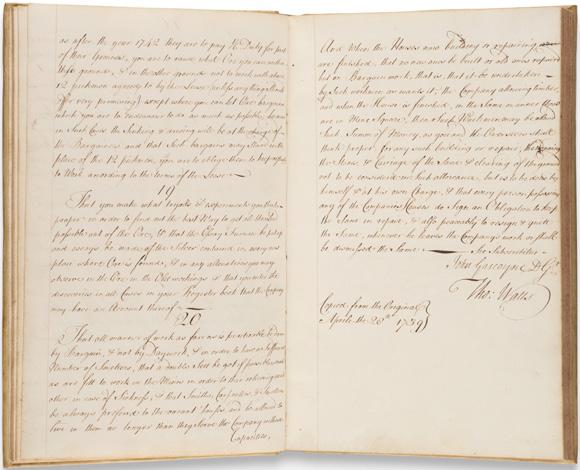 as after the year 1742 they are to pay ye Duty for part
of their Grounds, you are to raise what Ore you can under
those grounds, & in the other grounds not to work with above
12 pickmen agreed to by the Lease (unless any thing should
offer very promising) except where you can let Ore bargains
which you are to Endeavour to do as much as possible, because
in such Cases the Sinking & driving will be at the charge of
the Bargainers and that such bargains may stand with
place of the 12 pickmen, you are to oblige them to keep
to Work according to the terms of the Lease
19
That you make what tryals & experiments you think
proper in order to find out the best Way to get all the
possible out of the Ore, & that the Essay Furnace be kept
and essays be made of the Silver contained in every
place where Ore is found, & in any alterations you may
observe in the Ore in the Old workings & that you enter the
discoveries in all Cases in your Register book that the Company
may have an Account thereof
20
That all manner of work as far as is practicable be done
by Bargain & not by Daywork, & in order to have a sufficient
Number of Smelters, that a double Sett be got if possible,
as are fitt to work in the Mines in order to their relieving each
other in case of Sickness, & that Smiths, Carpenters, & Smelters
be always preferred to the vacant houses and be allowed to
live in them no longer than they serve the Company in their
Capacities,
And when the Houses now building or repairing
are finished, that no new ones be built or old ones repaired
but on Bargain work, that is, that it be undertaken
by such workmen as wants it; the Company allowing timber,
and when the House is finished, in the same manner those
are in Mine Square, then such Workmen may be allowed
such Summ of Money, as you and the Overseers think
that proper for any such building or repair, the
the Stone & Carriage of the same & clearing of the ground
not to be considered in such allowance, but is to be done by
himself & at his own Charge, & that every person possessing
any of the Companies Houses do Sign an Obligation to keep
the Same in repair, & also peaceably to resign & quit
the Same, whenever he leaves the Company's work or shall
be dismissed the Same
John Gascoyne D. Gr.
Tho: Watts
Copied from the Original
April the 28th 1739